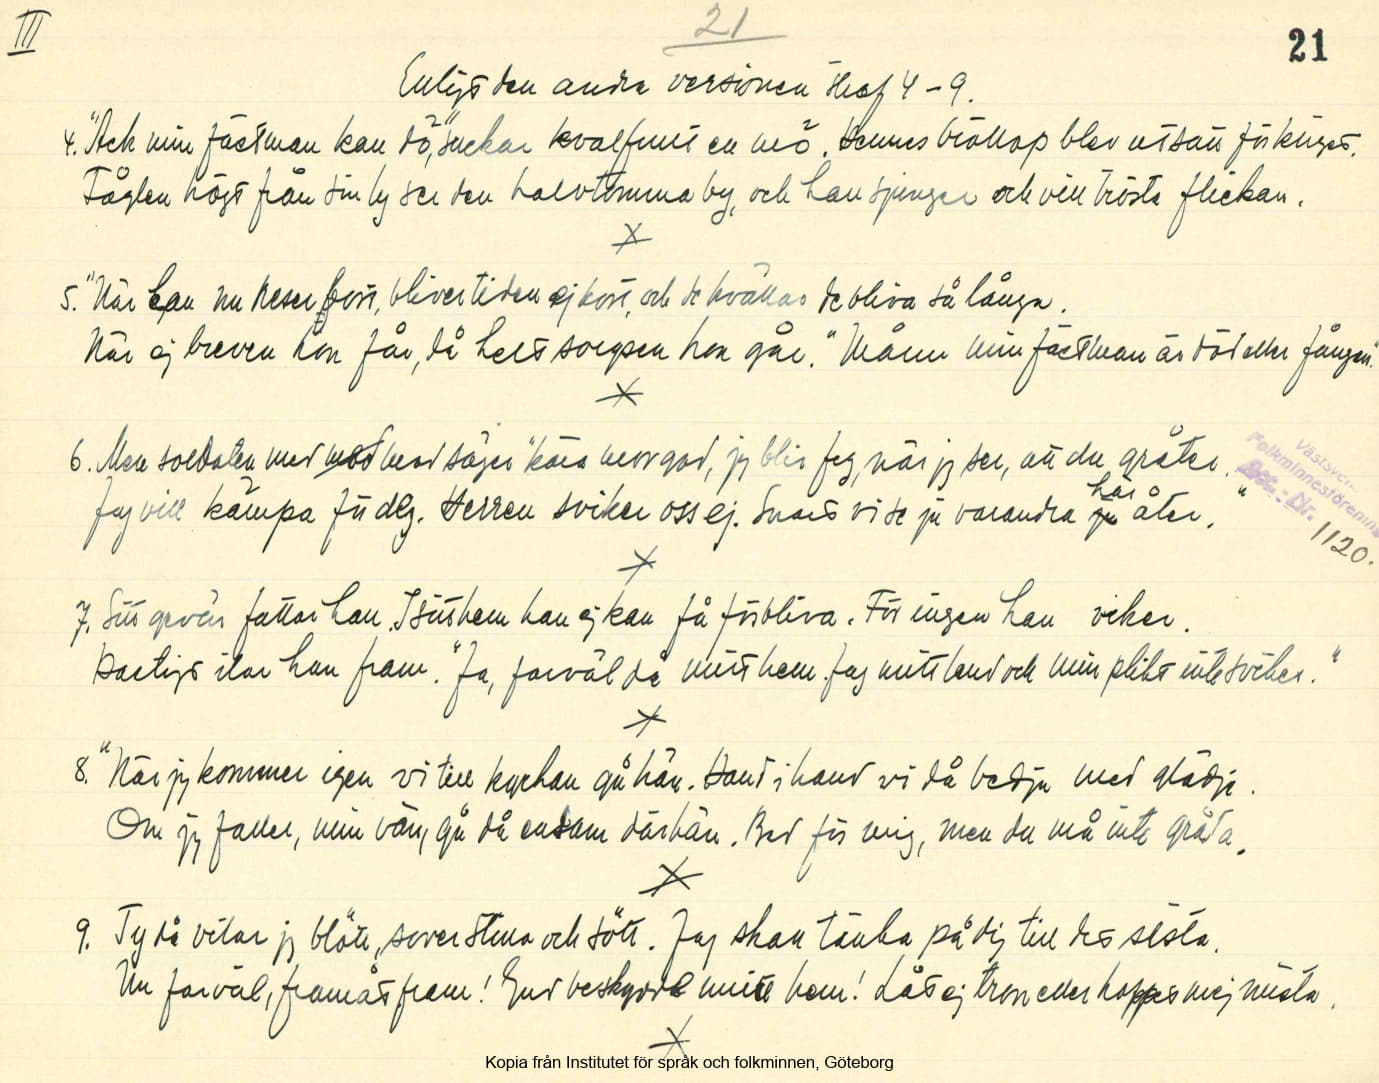 III
21
21
Enligt den andra versionen straf 4 – 9.
4. "Ack min fästman kan dö," suckar kvalfullt en mö. Hennes bröllop blev utsatt för kriget.
Fågeln högt från sin by ser den halvtomma by, och han sjunger och vill trösta flickan.
5. "När han nu reser bort, bliver tiden ej kort, och de kvällar de bliva så långa.
När ej breven hon får, då helt sorgsen hon går." Månn min fästman är död eller fången."
6. Men soldaten med mod säger "kära mor god, jag blir feg, när jag ser, att du gråter.
Jag vill kämpa för dig. Herren sviker oss ej. Snart vi se ju varandra här åter."
Västsven
Folkminnesförening
Acc.-Nr.
1120.
7. Sitt gevär fattar han. I sitt hem han ej kan få förbliva. För ingen han viker.
Hastigt ilar han fram. "Ja, farväl då mitt hem. Jag mitt land och min plikt inte sviker."
8. "När jag kommer igen vi till kyrkan gå hän. Hand i hand vi då bedja med glädje.
Om jag faller, min vän, gå då ensam därhän. Bed för mig, men du må inte gråta.
9. Ty då vilar jag blött, sover stilla och sött. Jag skall tänka på dig till det sista.
Nu farväl, framåt fram! Gud beskydde mitt hem! Låt ej tron eller hoppet mej mista.
Kopia från Institutet för språk och folkminnen, Göteborg